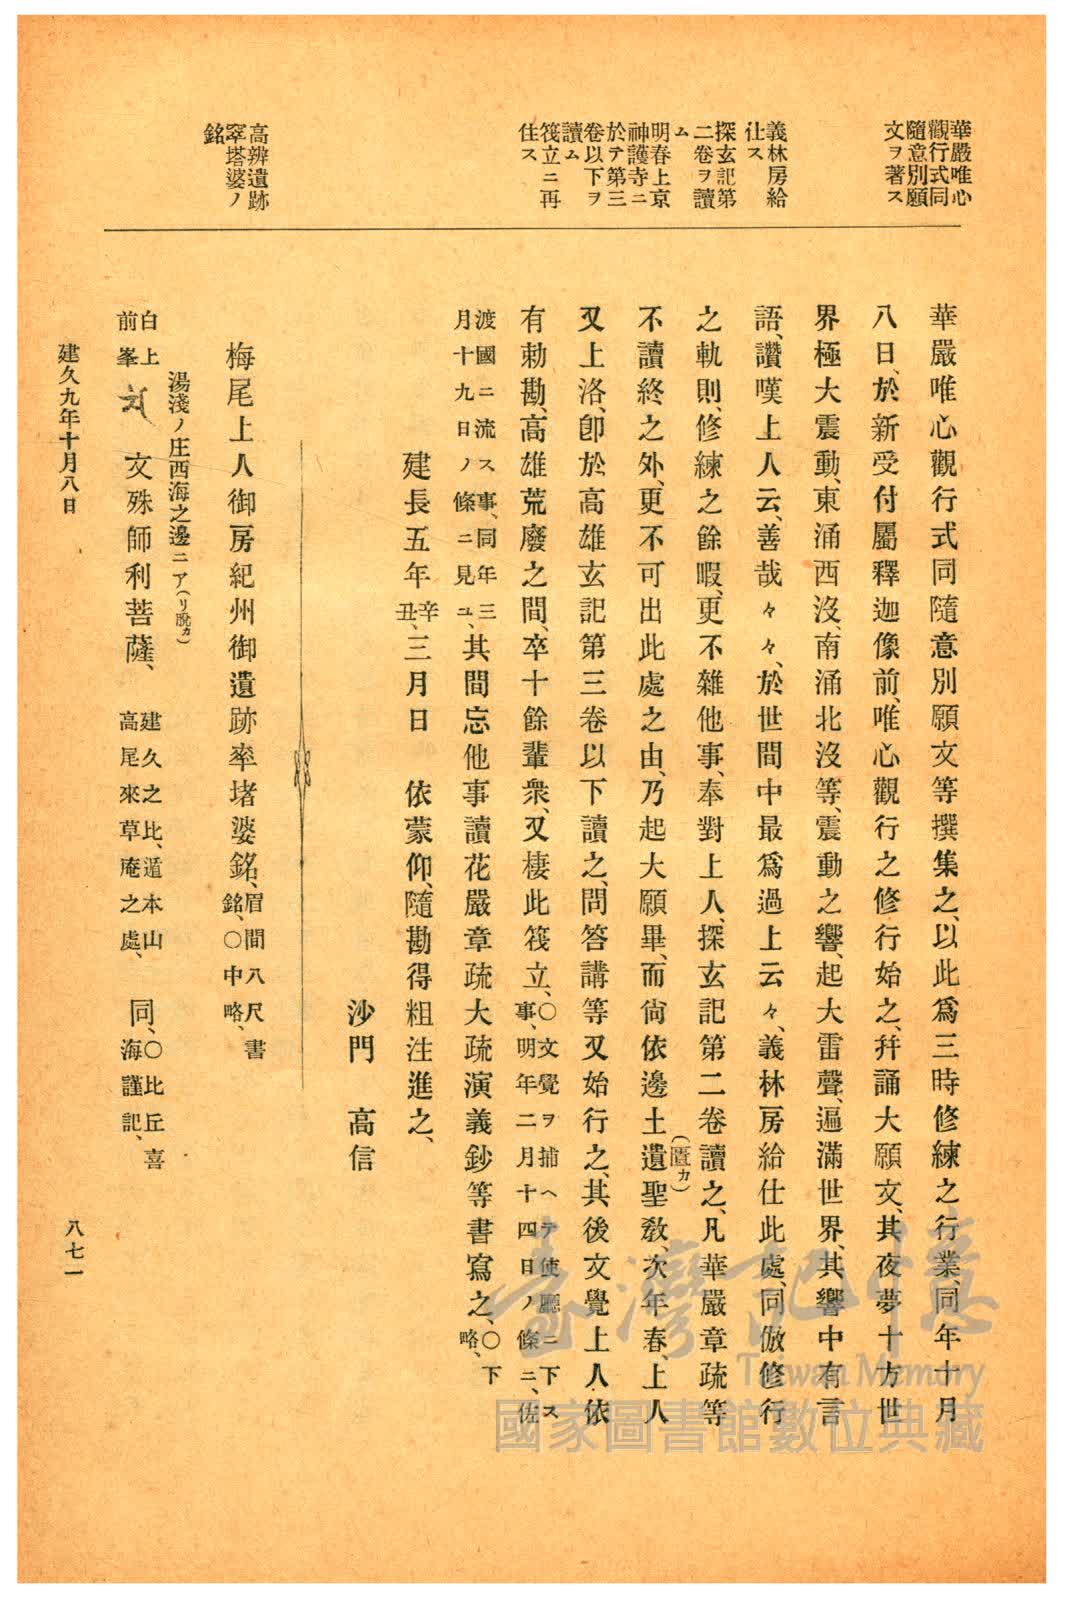 華嚴唯心
觀行式同
隨意別願
文ヲ著ス
義林房給
仕ス
探玄記第
二卷ヲ讀
ム
明春上京
神護寺ニ
於テ第三
卷以下ヲ
讀ム
筏立ニ再
住ス
高辨遺跡
窣塔婆ノ
銘
華嚴唯心觀行式同隨意別願文等撰集之、以此爲三時修練之行業、同年十月
八日、於新受付屬釋迦像前、唯心觀行之修行始之、幷誦大願文、其夜夢十方世
界極大震動、東涌西沒、南涌北沒等、震動之響、起大雷聲、遍滿世界、其響中有言
語、讚嘆上人云、善哉々々、於世間中最爲過上云々、義林房給仕此處、同倣修行
之軌則、修練之餘暇、更不雜他事、奉對上人、探玄記第二卷讀之、凡華嚴章疏等
不讀終之外、更不可出此處之由、乃起大願畢、而尙依邊土遺聖敎、次年春、上人
(匱カ)
又上洛、卽於高雄玄記第三卷以下讀之、問答講等又始行之、其後文覺上人依
有勅勘、高雄荒廢之間、卒十餘輩衆、又棲此筏立、○文覺ヲ捕ヘテ使廳ニ下ス
事、明年二月十四日ノ條ニ、佐
渡國ニ流ス事、同年三
月十九日ノ條ニ見ユ、其間忘他事讀花嚴章疏大疏演義鈔等書寫之、○下
略、
建長五年辛
丑、三月日 依蒙仰、隨勘得粗注進之、
沙門 高信
梅尾上人御房紀州御遺跡率堵婆銘、眉間八尺書
銘、○中略、
湯淺ノ庄西海之邊ニア(リ脫カ)
白上
前峯 文殊師利菩薩、建久之比、遁本山
高尾來草庵之處、同、○比丘喜
海謹記、
建久九年十月八日
八七一
臺灣記憶
Taiwan Memory
國家圖書館數位典藏